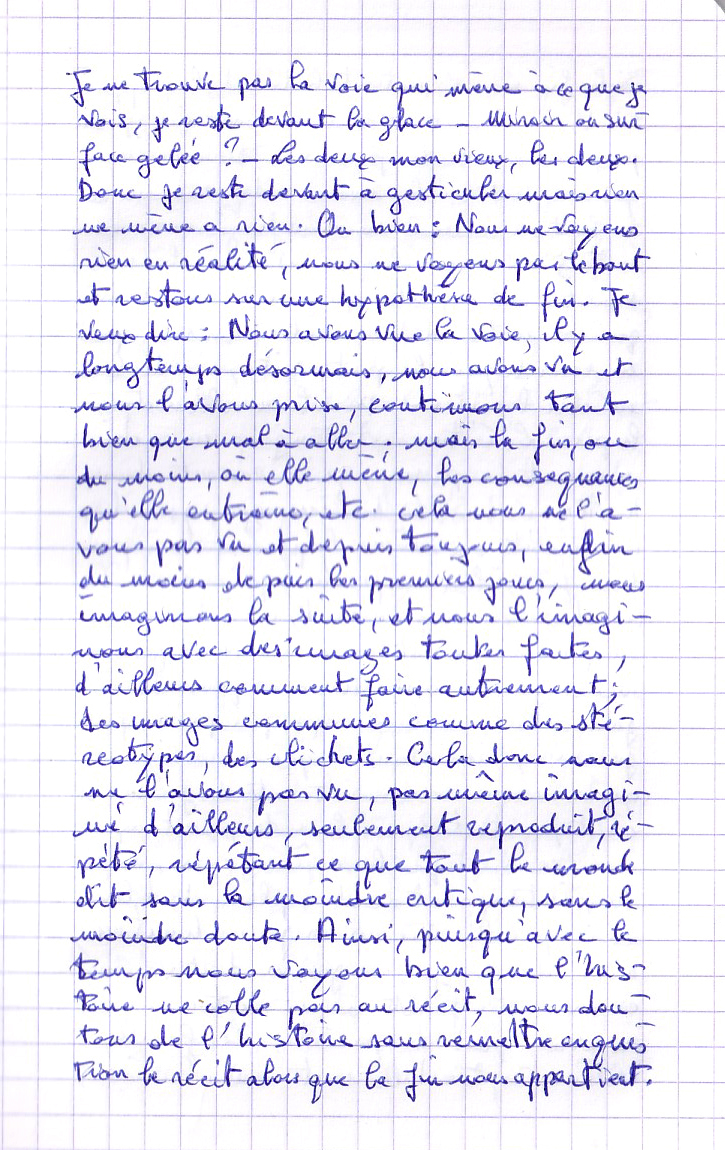 Je ne trouve pas la voie qui mène à ce que je
vois, je reste devant la glace – miroir ou sur
face gelée ? – Les deux mon vieux, les deux.
Donc je reste devant à gesticuler mais rien
ne mène a rien. Ou bien : Nous ne voyons
rien en réalité, nous ne voyons pas le bout
et restons sur une hypothèse de fin. Je
veux dire : Nous avons vue la voie, il y a
longtemps désormais, nous avons vu et
nous l'avons prise, continuons tant
bien que mal à aller ; mais la fin, ou
du moins, où elle mène, les conséquences
qu'elle entraîne, etc. cela nous ne l'a-
vons pas vu et depuis toujours, enfin
du moins depuis les premiers jours, nous
imaginons la suite, et nous l'imagi-
nons avec des images toutes faites,
d'ailleurs comment faire autrement ;
des images communes comme des sté-
réotypes, des clichets. Cela donc nous
ne l'avons pas vu, pas même imagi-
né d'ailleurs, seulement reproduit, ré-
pété, répétant ce que tout le monde
dit sans la moindre critique, sans le
moindre doute. Ainsi, puisqu'avec le
temps nous voyons bien que l'his-
toire ne colle pas au récit, nous dou-
tons de l'histoire sans remettre en ques
tion le récit alors que la fin nous appartient.